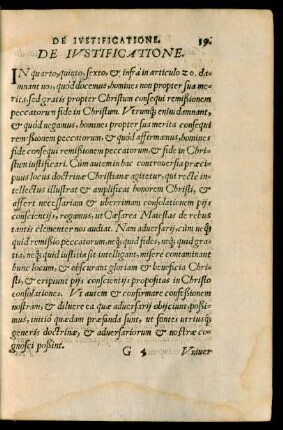 DE IVSTIFICATIONE. 59.
DE IVSTIFICATIONE.
IN quarto, quinto, sexto, & infra in articulo 20. da-
mnant nos, quòd docemus, homines non propter sua me-
rita, sed gratis propter Christum consequi remißionem
peccatorum fide in Christum. Vtrumq; enim damnant,
& quòd negamus, homines propter sua merita consequi
remißionem peccatorum, & quòd affirmamus, homines
fide consequi remißionem peccatorum, & fide in Chri-
stum iustificari. Cùm autem in hac controuersia præci-
puus locus doctrinæ Christianæ agitetur, qui rectè in-
tellectus illustrat & amplificat honorem Christi, &
affert necessariam & uberrimam consolationem pijs
conscientijs, rogamus, ut Cæsarea Maiestas de rebus
tantis clementer nos audiat. Nam aduersarij, cùm neq;
quid remißio peccatorum, neq; quid fides, neq; quid gra-
tia, neq; quid iustitia sit intelligant, miserè contaminant
hunc locum, & obscurant gloriam & beneficia Chri-
sti, & eripiunt pijs conscientijs propositas in Christo
consolationes. Vt autem & confirmare confeßionem
nostram, & diluere ea quæ aduersarij obijciunt, poßi-
mus, initio quædam præfanda sunt, ut fontes utriusq;
generis doctrinæ, & aduersariorum & nostræ co-
gnosci poßint.
G Vniuer